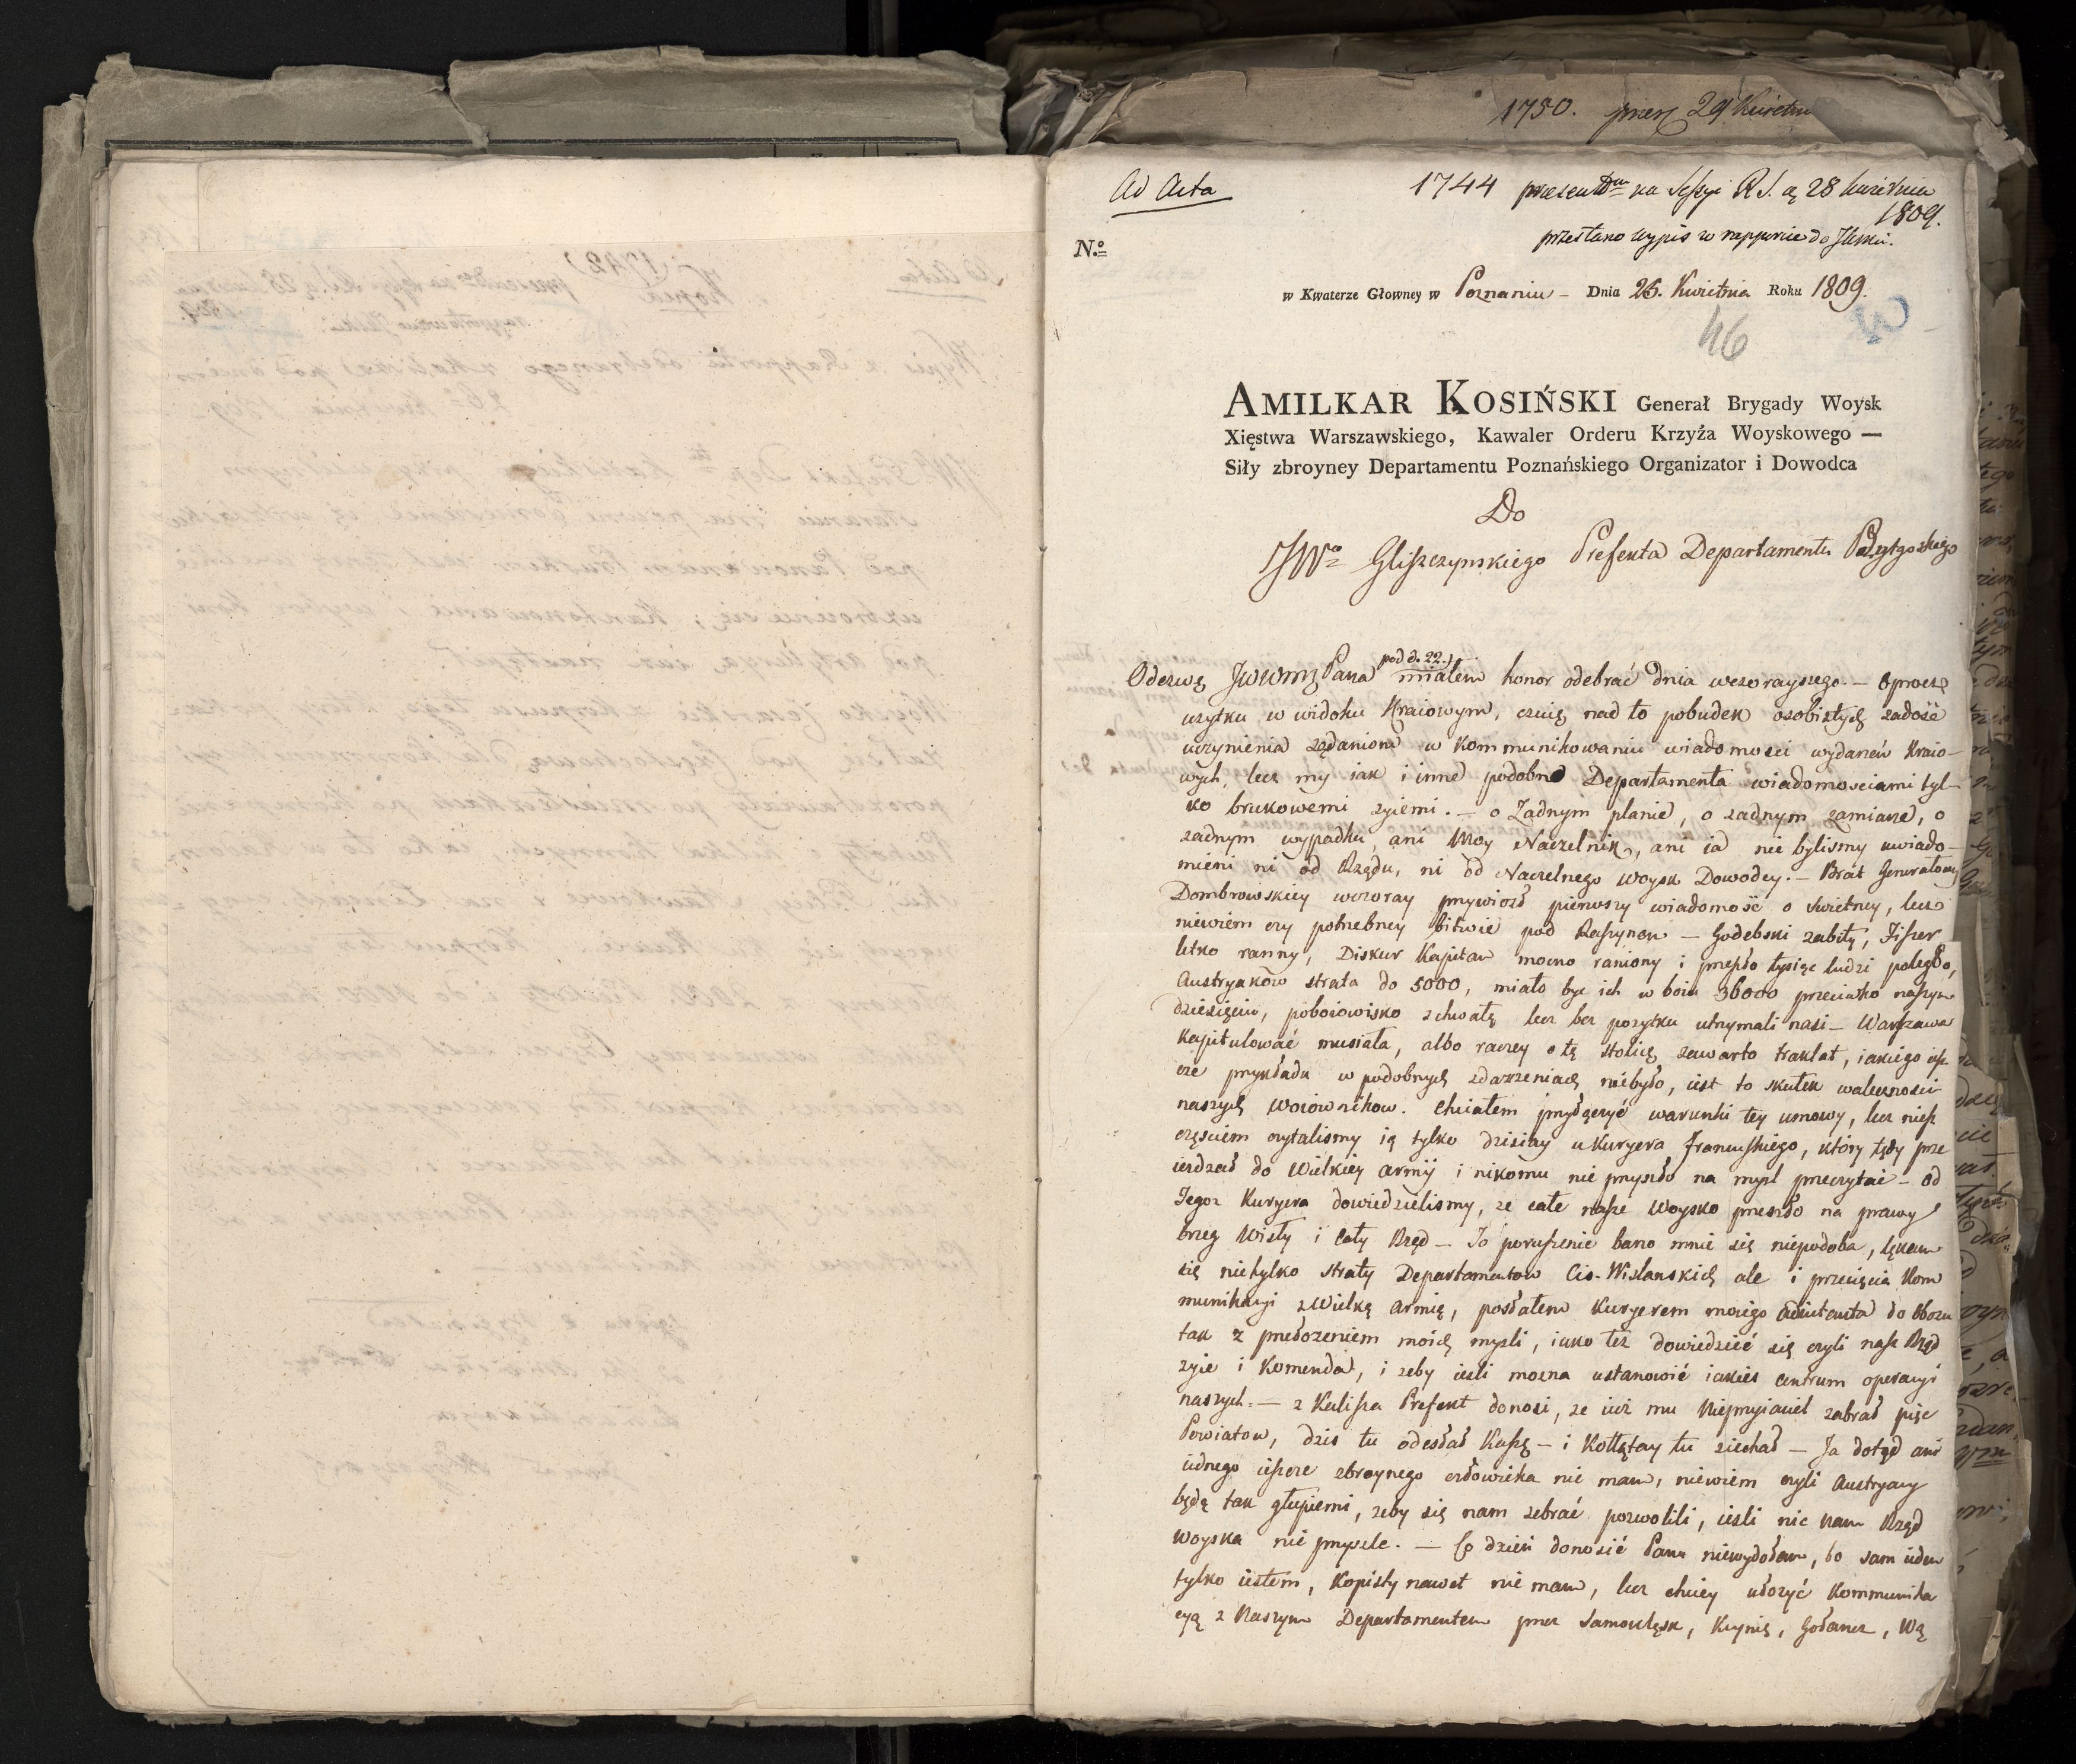 1750. 29 Kwietn
Ad Acta
1744 praesentm na Sessyi R. d. 28 kwietnia
1809.
przesłano wypis w rapporcie do
N.o
w Kwaterze Głowney w Poznaniu – Dnia 26. Kwietnia Roku 1809.
46
AMILKAR KOSIŃSKI Generał Brygady Woysk
Xięstwa Warszawskiego, Kawaler Orderu Krzyża Woyskowego —
Siły zbroyney Departamentu Poznańskiego Organizator i Dowodca
Do
JWo Gliszczynskiego Prefekta Departamentu Bydgoskiego
pod d. 22.
Odezwę JWWmz Pana miałem honor odebrać dnia wczorayszego. – Oprocz
użytku w widoku Kraiowym, czuię nad to pobudek osobistych zadość
uczynienia żądaniom w kommunikowaniu wiadomosci wydarzeń kraio-
wych, lecz my iak i inne podobne Departamenta wiadomosciami tyl-
ko brukowemi żyiemi. – o Żadnym planie, o zadnym zamiarze, o
zadnym wypadku, ani Moy Naczelnik, ani ia nie bylismy uwiado-
mieni ni od Rządu, ni od Naczelnego Woysk Dowodcy. – Brat Generałowy
Dombrowskiey wczoray przywiozł pierwszy wiadomość o swietney, lecz
niewiem czy potrzebney bitwie pod Raszynem – Godebski zabity, Fiszer
letko ranny, Diskur Kapitan mocno raniony i przeszło tysiąc ludzi poległo,
Austryaków strata do 5000, miało byc ich w boiu 36000 przeciwko naszym
dziesięciu, poboiowisko z chwałą lecz bez pożytku utrzymali nasi – Warszawa
kapitulować musiała, albo raczey o tę stolicę zawarto traktat, iakiego iesz
cze przykładu w podobnych zdarzeniach niebyło, iest to skutek waleczności
naszych woiowników. Chciałem przyłączyć warunki tey umowy, lecz niesz
częsciem czytalismy ią tylko dzisiay u Kuryera Francuskiego, który tędy prze
ieżdżał do Wielkiey Armij i nikomu nie przyszło na mysl przeczytać – od
Tegoz Kuryera dowiedzielismy, ze całe nasze Woysko przeszło na prawy
brzeg Wisły i Cały Rząd – To poruszenie barzo mnie się niepodoba, lękam
się nietylko straty Departamentow Cis-Wislanskich ale i przecięcia Kom
munikacyi z Wielką Armią, posłałem Kuryerem moiego adiutanta do Obozu
tak z przełożeniem moich mysli, iako też dowiedzieć się czyli nasz Rząd
zyie i Komenda, i zeby iesli można ustanowić iakies centrum operacyi
naszych. – z Kalisza Prefekt donosi, ze iuż mu Nieprzyiaciel zabrał pięc
Powiatow, dzis tu odesłał Kassę – i Kołłątay tu ziechał – Ja dotąd ani
iednego ieszcze zbroynego człowieka nie mam, niewiem czyli Austryacy
będą tak głupiemi, zeby się nam zebrać pozwolili, iesli nic nam Rząd
Woyska nie przyszle. – Co dzień donosić Panu niewydołam, bo sam ieden
tylko iestem, Kopisty nawet nie mam, lecz chciey ułożyć Kommunika
cyą z Naszym Departamentem przez Samoklęsk, Kcynię, Gołancz, Wą